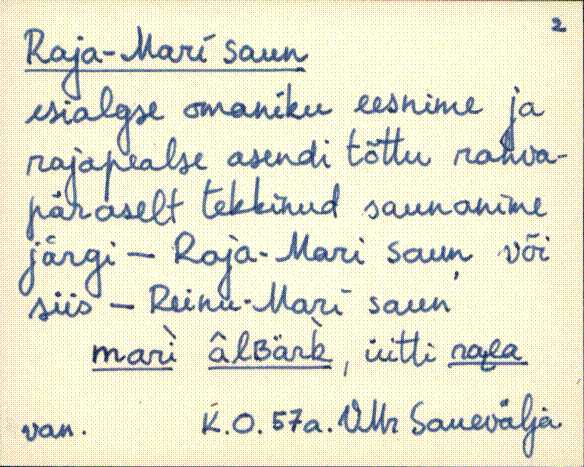 2
Raja-Mari saun
esialgse omaniku eesnime ja
rajapealse asendi tõttu rahva-
päraselt tekkinud saunanime
järgi — Raja-Mari saun või
siis — Reinu-Mari saun
marì̬ âlʙär̀k, üitti
van. K.O. 57a. VMr Sauevälja